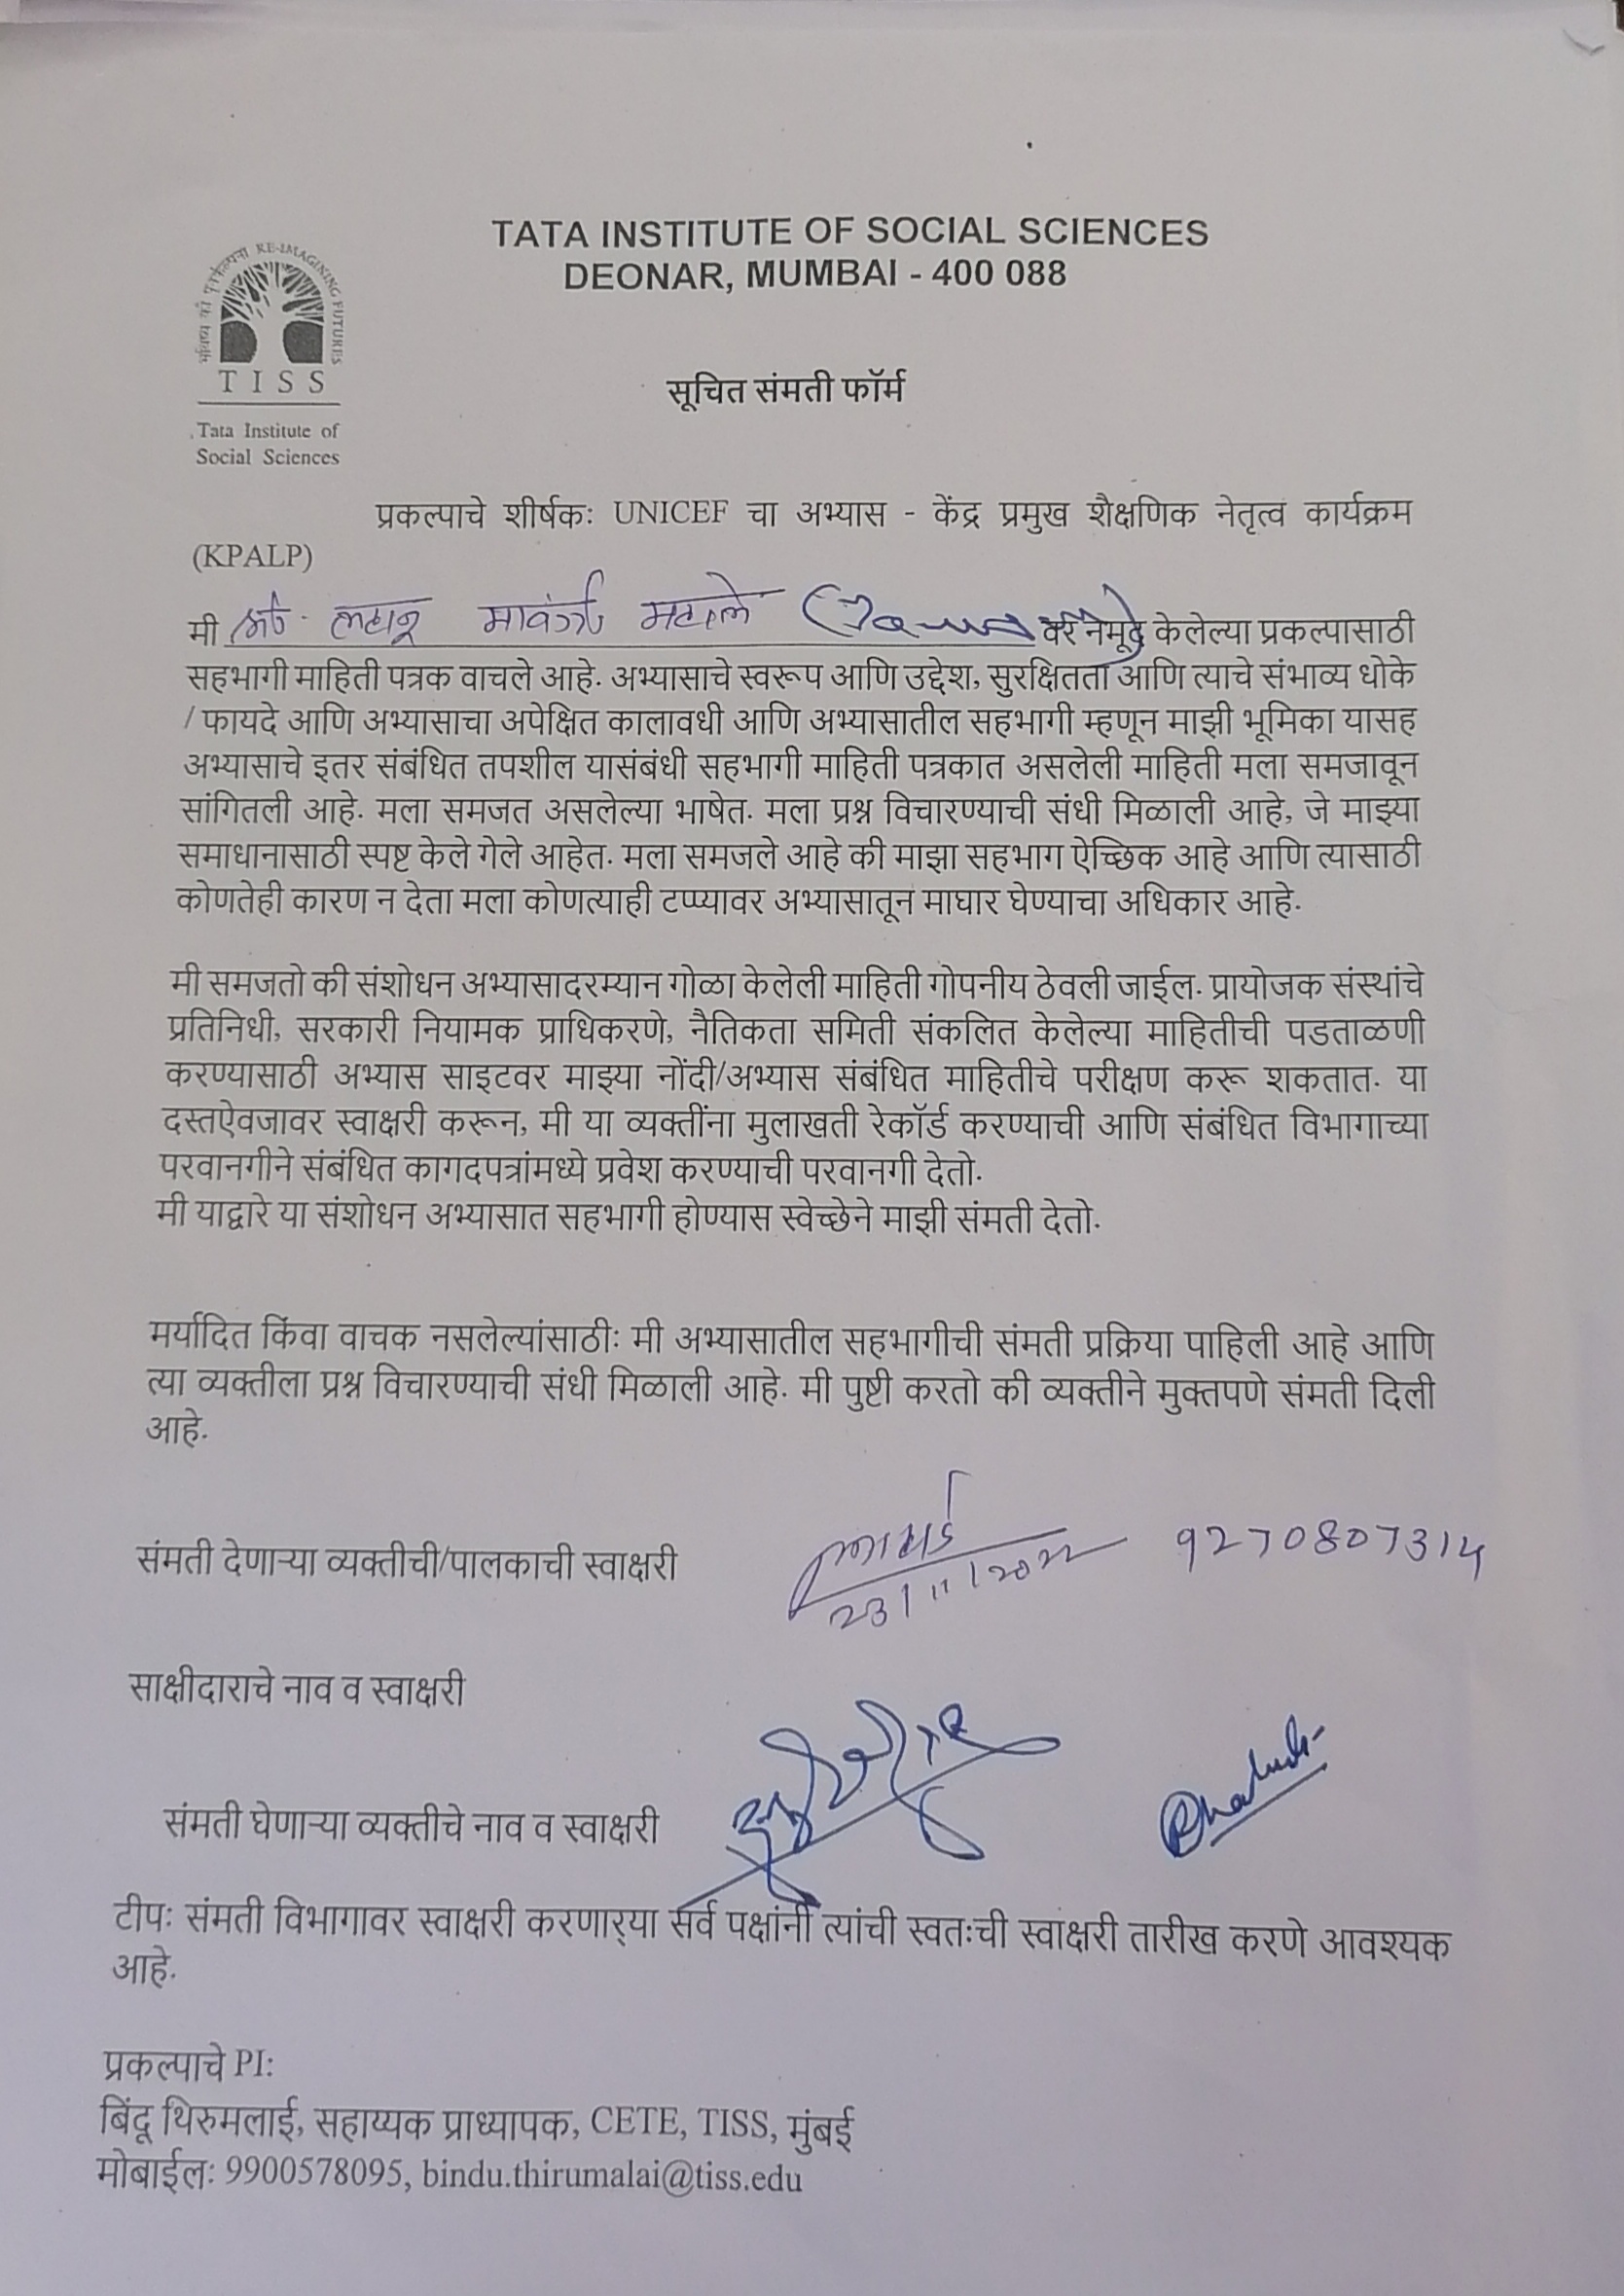 TATA INSTITUTE OF SOCIAL SCIENCES
DEONAR, MUMBAI - 400 088
भविष्य की पुनर्कल्पना RE-IMAGINING FUTURES
TISS
Tata Institute of
Social Sciences
सूचित संमती फॉर्म
प्रकल्पाचे शीर्षकः UNICEF चा अभ्यास - केंद्र प्रमुख शैक्षणिक नेतृत्व कार्यक्रम
(KPALP)
मी वर नमूद केलेल्या प्रकल्पासाठी
सहभागी माहिती पत्रक वाचले आहे. अभ्यासाचे स्वरूप आणि उद्देश, सुरक्षितता आणि त्याचे संभाव्य धोके
/ फायदे आणि अभ्यासाचा अपेक्षित कालावधी आणि अभ्यासातील सहभागी म्हणून माझी भूमिका यासह
अभ्यासाचे इतर संबंधित तपशील यासंबंधी सहभागी माहिती पत्रकात असलेली माहिती मला समजावून
सांगितली आहे. मला समजत असलेल्या भाषेत. मला प्रश्न विचारण्याची संधी मिळाली आहे, जे माझ्या
समाधानासाठी स्पष्ट केले गेले आहेत. मला समजले आहे की माझा सहभाग ऐच्छिक आहे आणि त्यासाठी
कोणतेही कारण न देता मला कोणत्याही टप्प्यावर अभ्यासातून माघार घेण्याचा अधिकार आहे.
मी समजतो की संशोधन अभ्यासादरम्यान गोळा केलेली माहिती गोपनीय ठेवली जाईल. प्रायोजक संस्थांचे
प्रतिनिधी, सरकारी नियामक प्राधिकरणे, नैतिकता समिती संकलित केलेल्या माहितीची पडताळणी
करण्यासाठी अभ्यास साइटवर माझ्या नोंदी/अभ्यास संबंधित माहितीचे परीक्षण करू शकतात. या
दस्तऐवजावर स्वाक्षरी करून, मी या व्यक्तींना मुलाखती रेकॉर्ड करण्याची आणि संबंधित विभागाच्या
परवानगीने संबंधित कागदपत्रांमध्ये प्रवेश करण्याची परवानगी देतो.
मी याद्वारे या संशोधन अभ्यासात सहभागी होण्यास स्वेच्छेने माझी संमती देतो.
मर्यादित किंवा वाचक नसलेल्यांसाठीः मी अभ्यासातील सहभागीची संमती प्रक्रिया पाहिली आहे आणि
त्या व्यक्तीला प्रश्न विचारण्याची संधी मिळाली आहे. मी पुष्टी करतो की व्यक्तीने मुक्तपणे संमती दिली
आहे.
संमती देणाऱ्या व्यक्तीची/पालकाची स्वाक्षरी 9270807314
23/11/2022
साक्षीदाराचे नाव व स्वाक्षरी
संमती घेणाऱ्या व्यक्तीचे नाव व स्वाक्षरी
टीपः संमती विभागावर स्वाक्षरी करणाऱ्या सर्व पक्षांनी त्यांची स्वतःची स्वाक्षरी तारीख करणे आवश्यक
आहे.
प्रकल्पाचे PI:
बिंदू थिरुमलाई, सहाय्यक प्राध्यापक, CETE, TISS, मुंबई
मोबाईलः 9900578095, bindu.thirumalai@tiss.edu